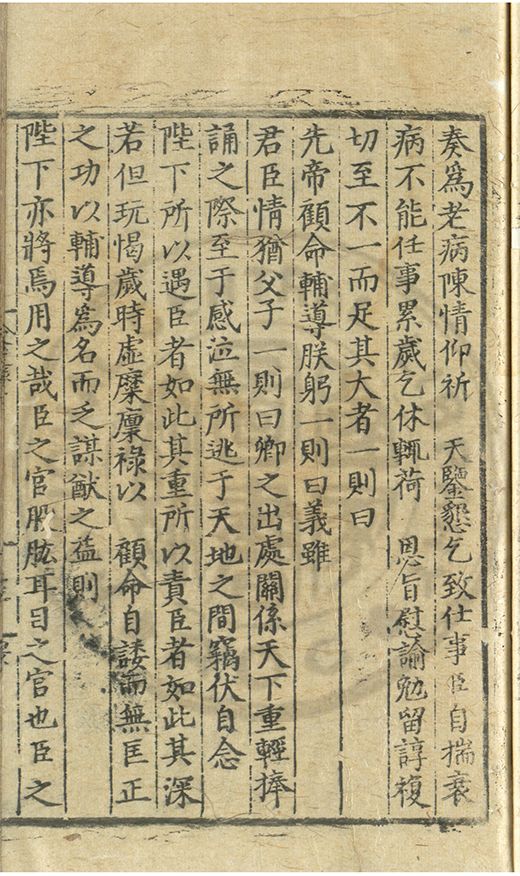 奏爲老病陳情仰祈　天鑒懇乞致仕事臣自揣衰
病不能任事累歲乞休輒荷　恩旨慰諭勉留諄複
切至不一而足其大者一則曰
先帝顧命輔導朕躬一則曰義雖
君臣情猶父子一則曰卿之出處關係天下重輕捧
誦之際至于感泣無所逃于天地之間竊伏自念
陛下所以遇臣者如此其重所以責臣者如此其深
若但玩愒歲時虛糜廩祿以　顧命自諉而無匡正
之功以輔導爲名而乏謀猷之益則
陛下亦將焉用之哉臣之官股肱耳目之官也臣之